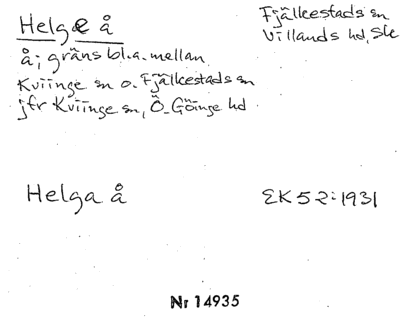 Helge å
Fjälkestads sn
Villands hd, Sk
å; gräns bl.a. mellan
Kviinge sn o. Fjälkestads sn
jfr Kviinge sn, Ö. Göinge hd
Helga å
EK 52:1931
Nr 14935